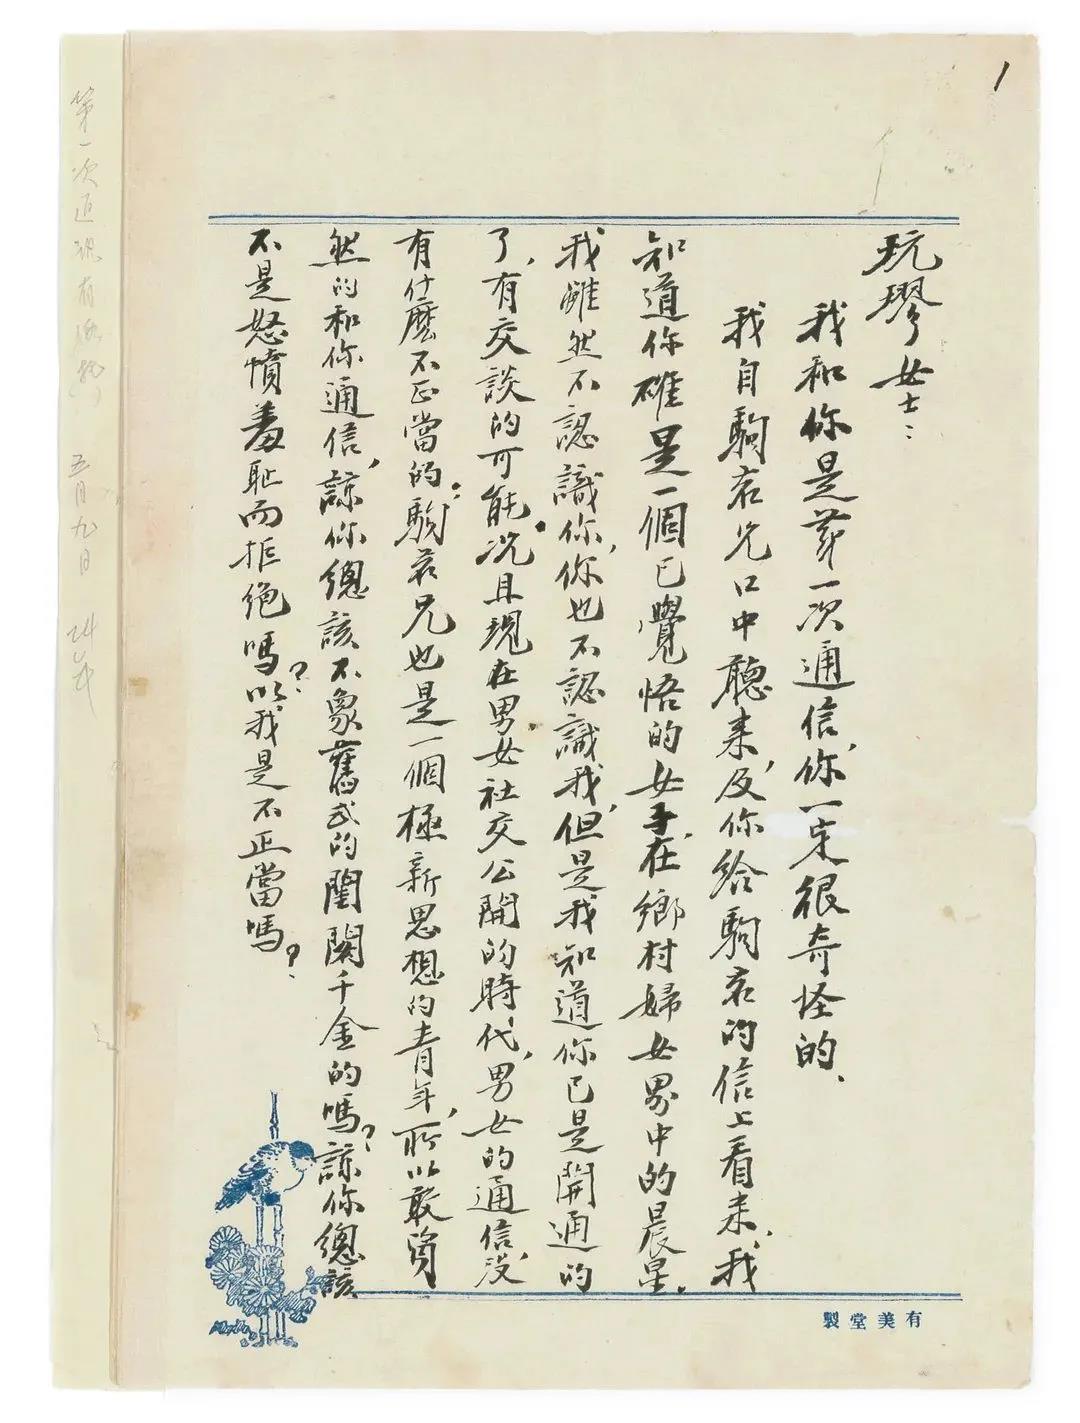 1
玩璆女士：
我和你是第一次通信，你一定很奇怪的、
我自駒哀兄口中聽来，及你給駒哀的信上看来，我
知道你確是一個已覺悟的女子，在鄉村婦女界中的晨星，
我雖然不認識你，你也不認識我，但是我知道你已是開通的
了，有交談的可能。况且現在男女社交公開的時代，男女的通信，没
有什麼不正當的；駒哀兄也是一個極新思想的青年，所以敢貿
然的和你通信，諒你總該不象舊式的閨閣千金的嗎？諒你總該
不是怒憤羞恥而拒绝嗎？以我是不正當嗎？
有美堂製
第一次通
有
五月九日